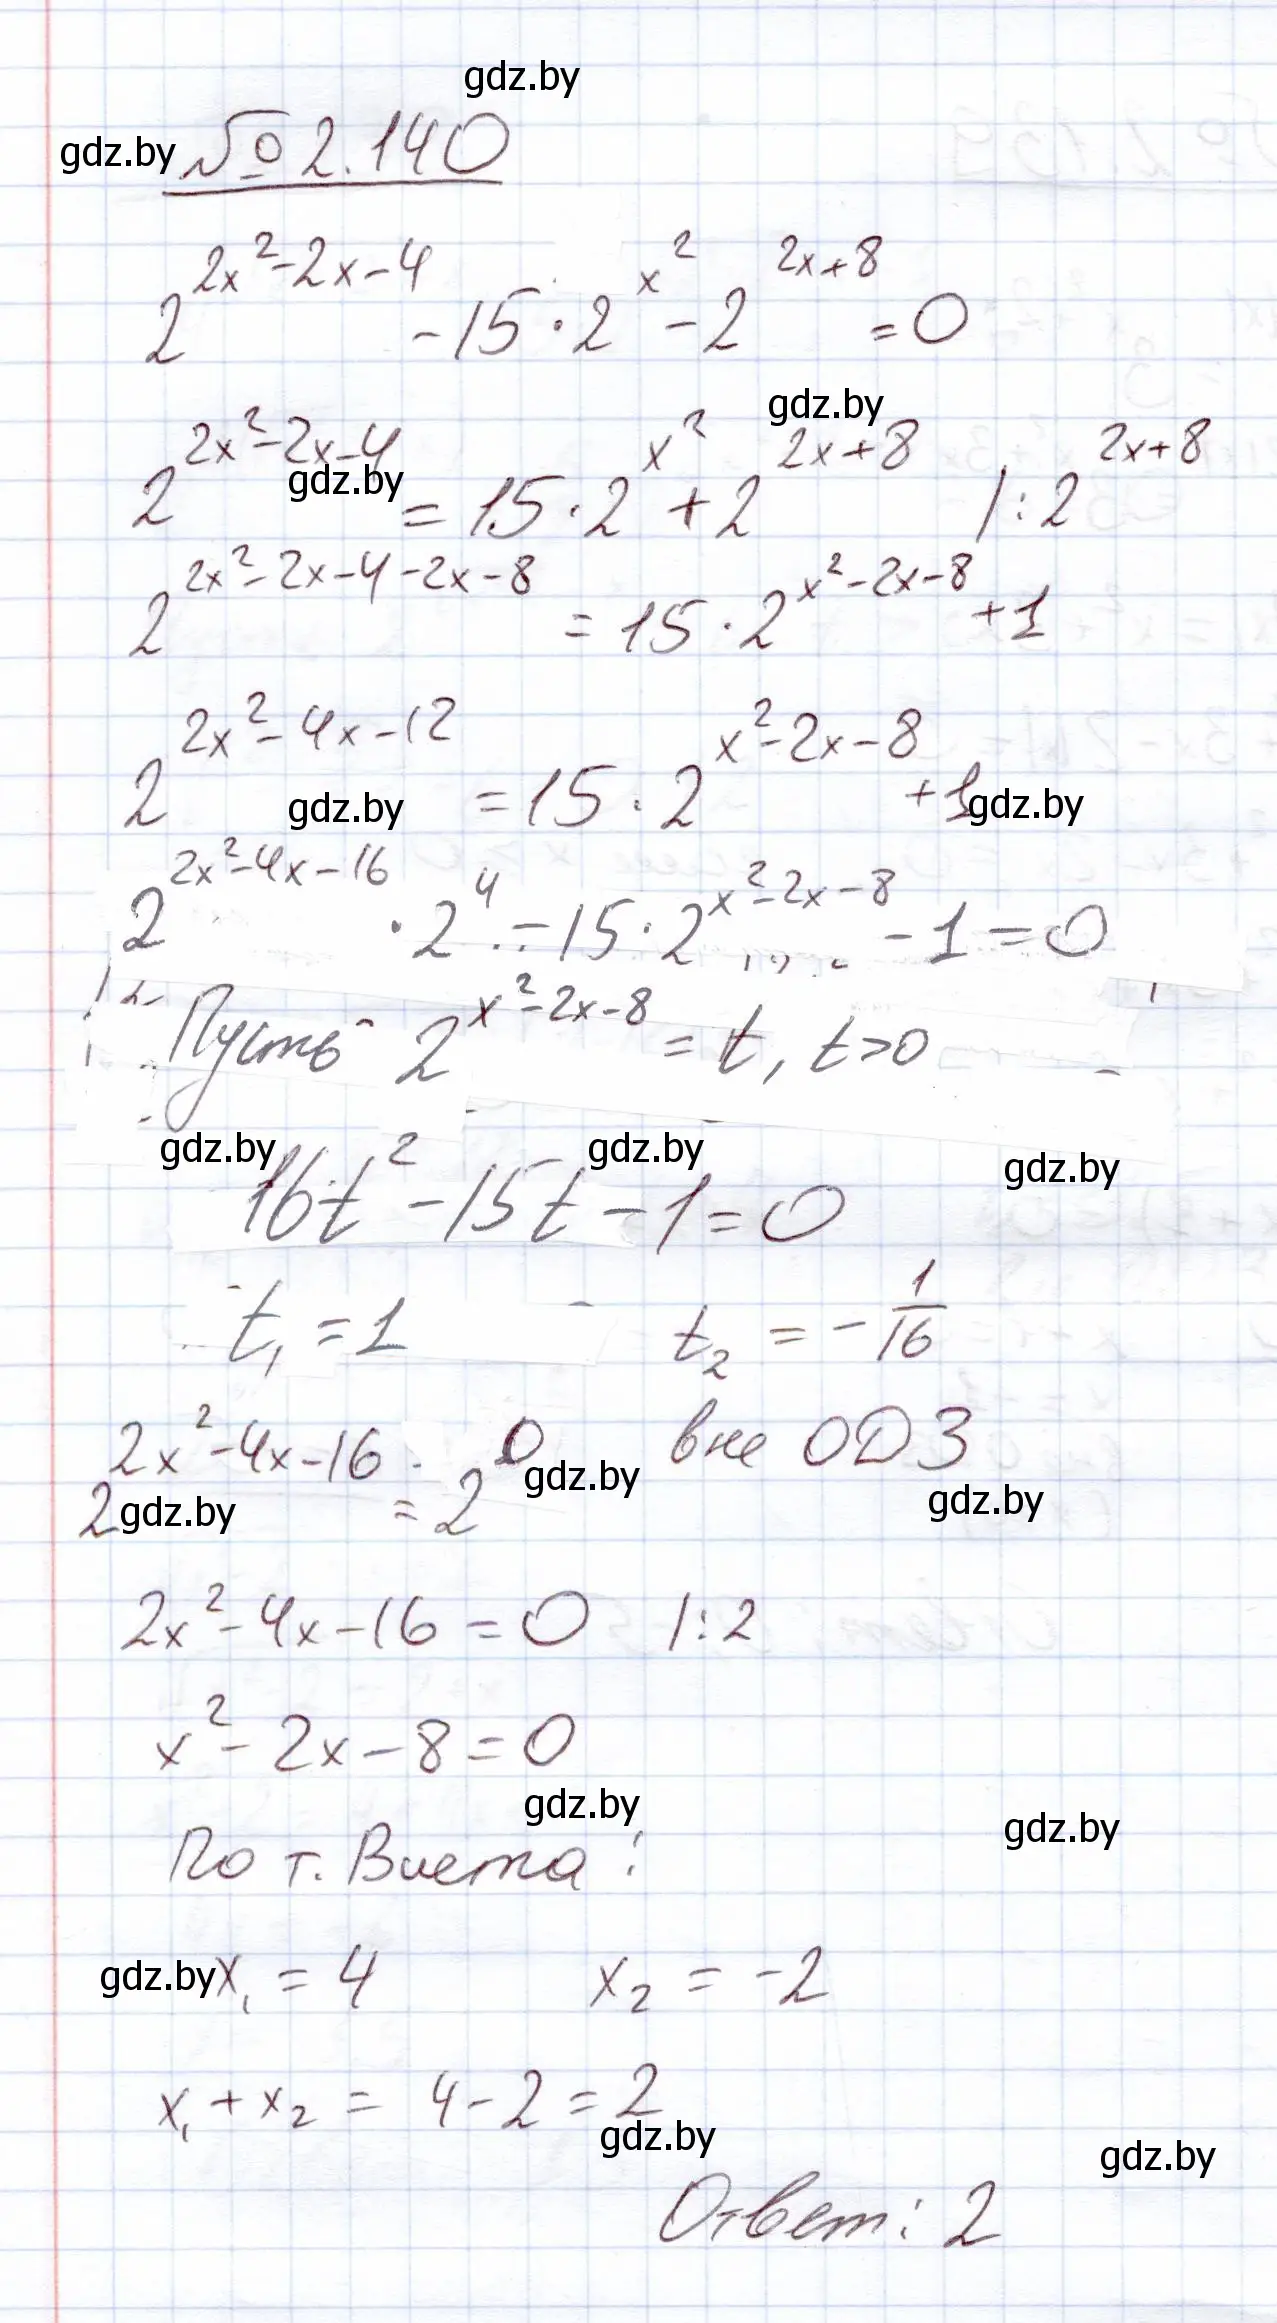 gdz.by
gdz.by № 2.140
2^{2x²-2x-4} - 15·2^{x²} - 2^{2x+8} = 0
gdz.by
2^{2x²-2x-4} = 15·2^{x²} + 2^{2x+8} |:2^{2x+8}
gdz.by
2^{2x²-2x-4-2x-8} = 15·2^{x²-2x-8} + 1
2^{2x²-4x-12} = 15·2^{x²-2x-8} + 1
gdz.by gdz.by
2^{2x²-4x-16}·2⁴ - 15·2^{x²-2x-8} - 1 = 0
Пусть 2^{x²-2x-8} = t, t>0
gdz.by gdz.by gdz.by
16t² - 15t - 1 = 0
t₁ = 1 t₂ = -1/16
2^{2x²-4x-16} = 2^0 вне ОДЗ
gdz.by gdz.by gdz.by
2x² - 4x - 16 = 0 |:2
x² - 2x - 8 = 0
gdz.by gdz.by
По т. Виета:
gdz.by x₁ = 4 x₂ = -2
x₁ + x₂ = 4 - 2 = 2
gdz.by gdz.by
Ответ: 2